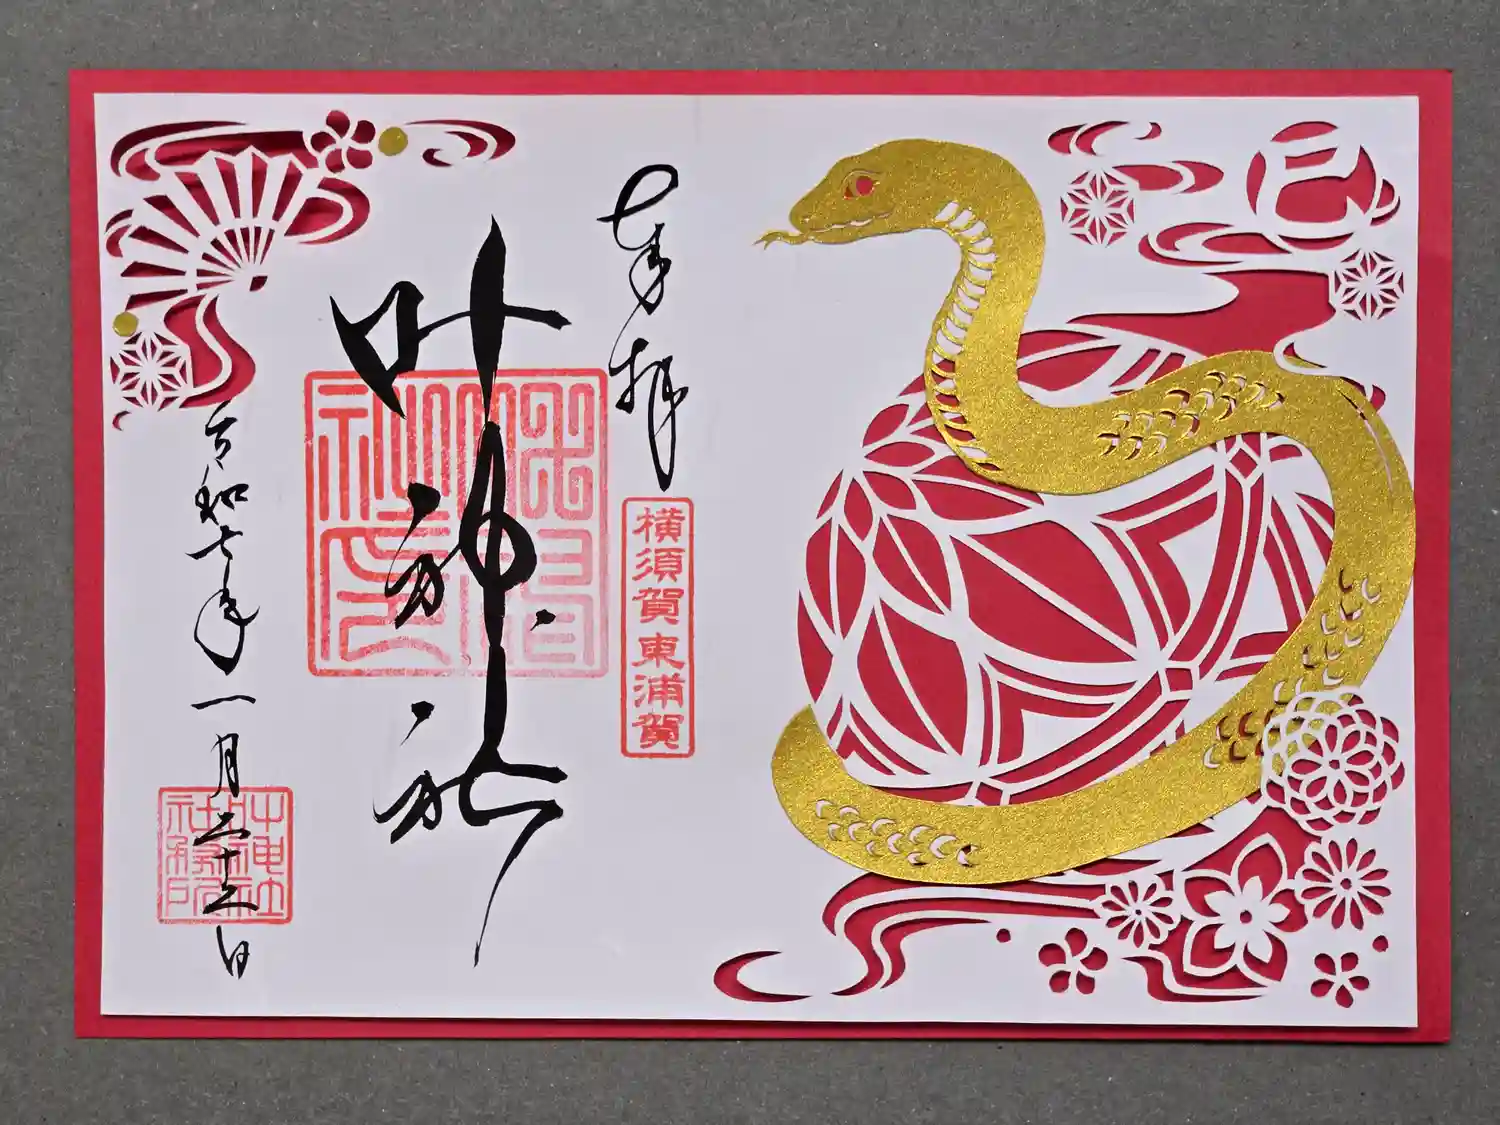 巳
奉拝
横須賀東浦賀
叶神社
令和七年一月二十三日